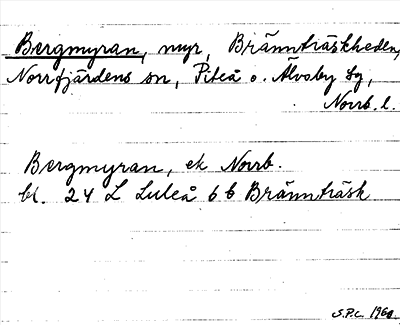 Bergmyran, myr, Brännträskheden,
Norrfjärdens sn, Piteå o. Älvsby tg,
Norrb. l.
Bergmyran, ek Norrb.
bl. 24 L Luleå 6 b Brännträsk
S.P.L. 1960.